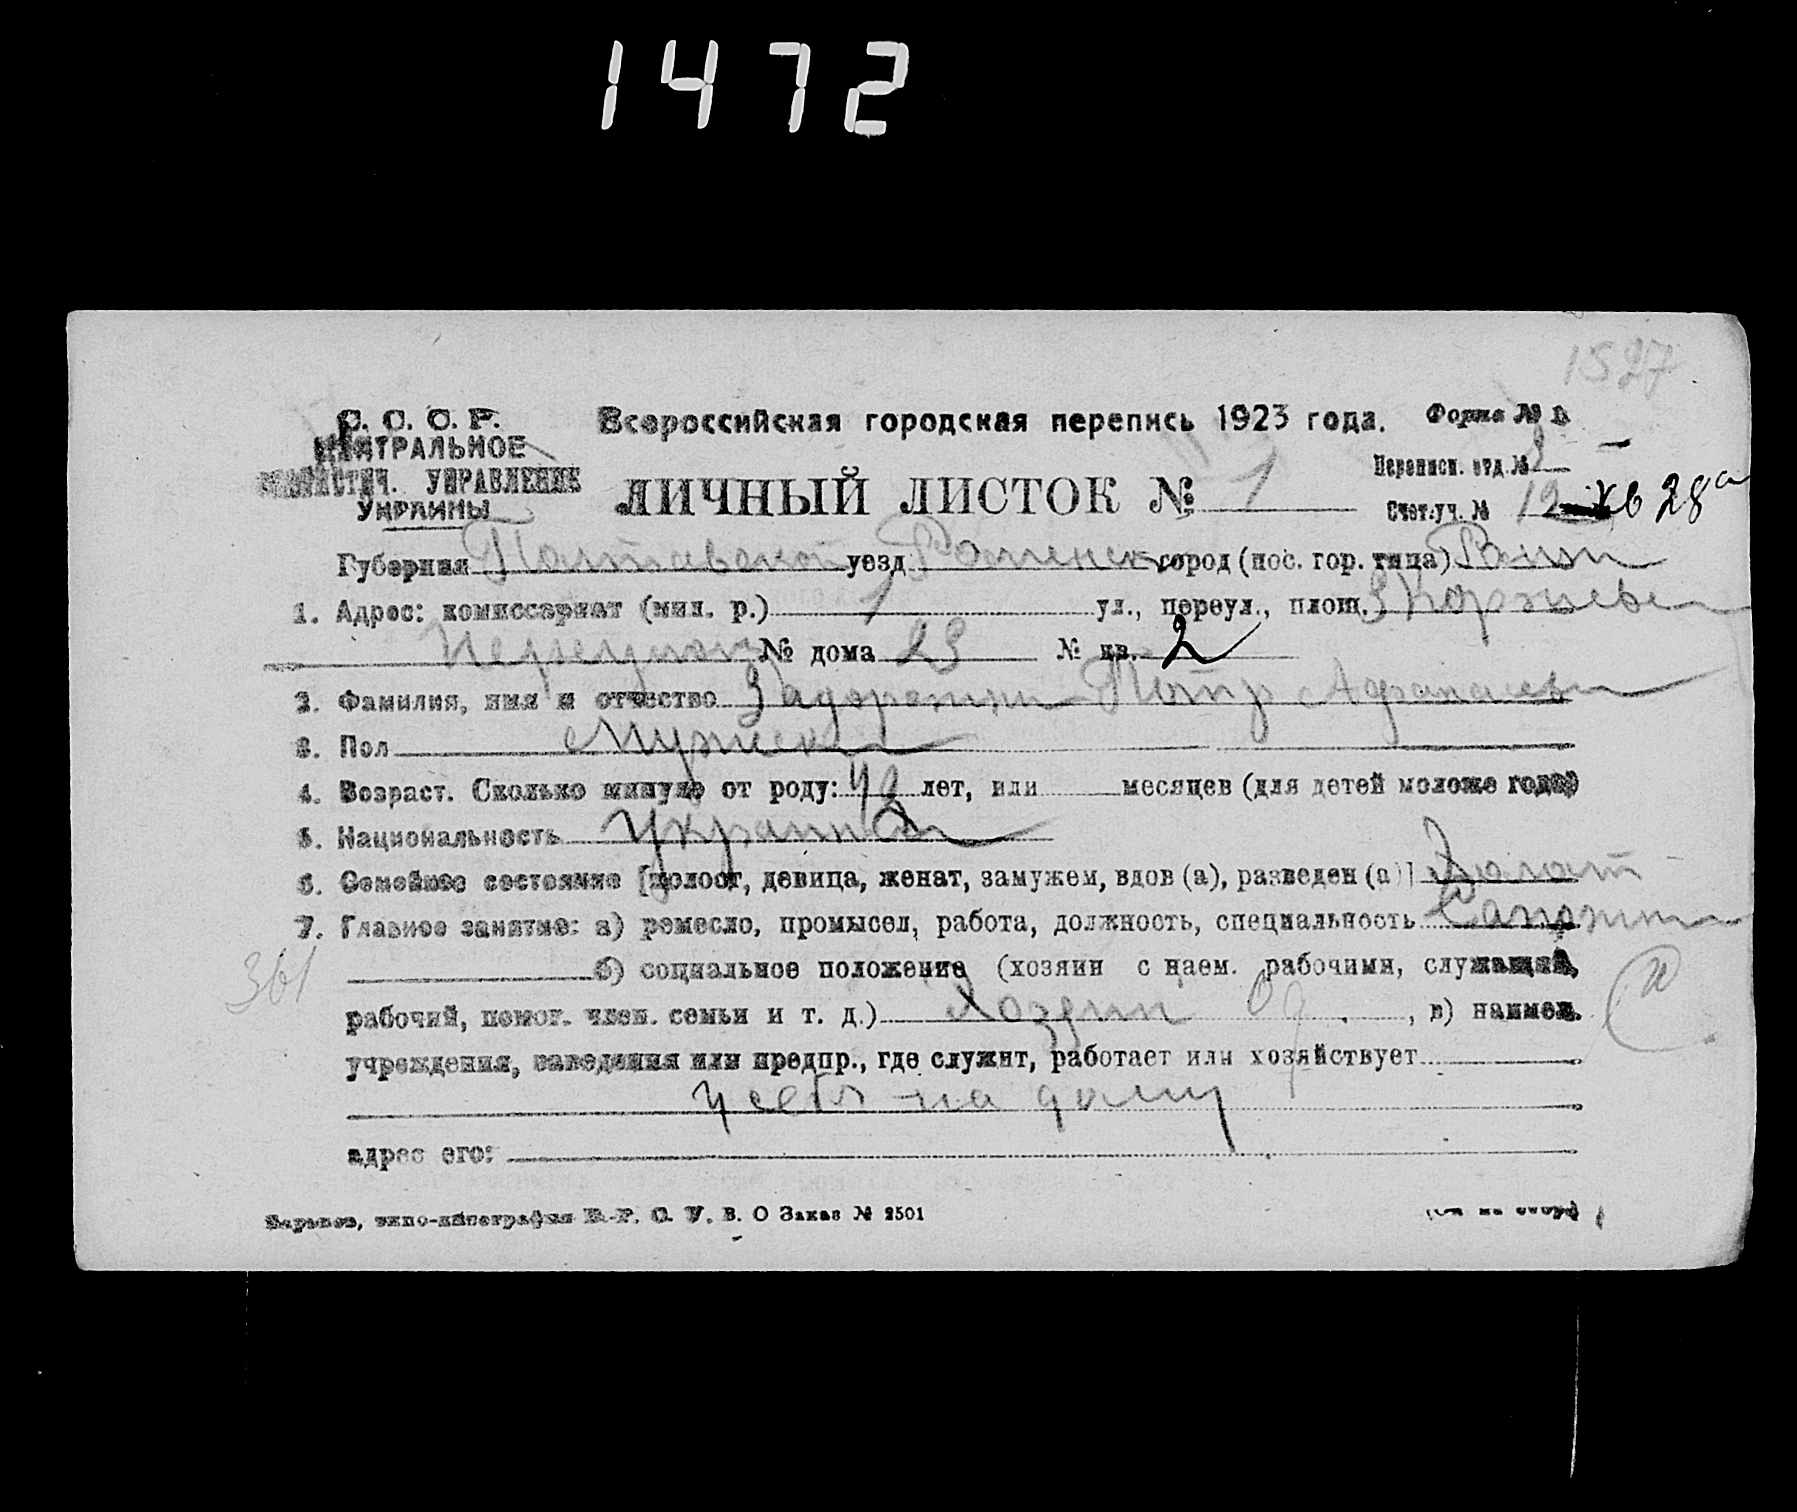 1472
1527
С. С. С. Р. Всероссийская городская перепись 1923 года. Форма №
ЦЕНТРАЛЬНОЕ
СТАТИСТИЧ. УПРАВЛЕНИЕ ЛИЧНЫЙ ЛИСТОК № 1 Переписн. отд. №
УКРАИНЫ Счет. уч. № 12 кв 28а
Губерния Полтавской уезд Роменск город (пос. гор. типа) Ромны
1. Адрес: комиссариат (мил. р.) 1 ул., переул., площ. 3 Коржевс
Переулок № дома 23 № кв. 2
2. Фамилия, имя и отчество Задорожни Петр Афанасьев
3. Пол Мужской
4. Возраст. Сколько минуло от роду: лет, или месяцев (для детей моложе года)
5. Национальность Украин
6. Семейное состояние [холост, девица, женат, замужем, вдов (а), разведен (а)]
7. Главное занятие: а) ремесло, промысел, работа, должность, специальность Сапожни
361 б) социальное положение (хозяин с наем. рабочими, служащий,
рабочий, помог. член. семьи и т. д.) Хозяин Од , в) наимен.
учреждения, заведения или предпр., где служит, работает или хозяйствует
у себя на дому
адрес его:
Харьков, типо-литография В. О Заказ № 2501 (См на обор)